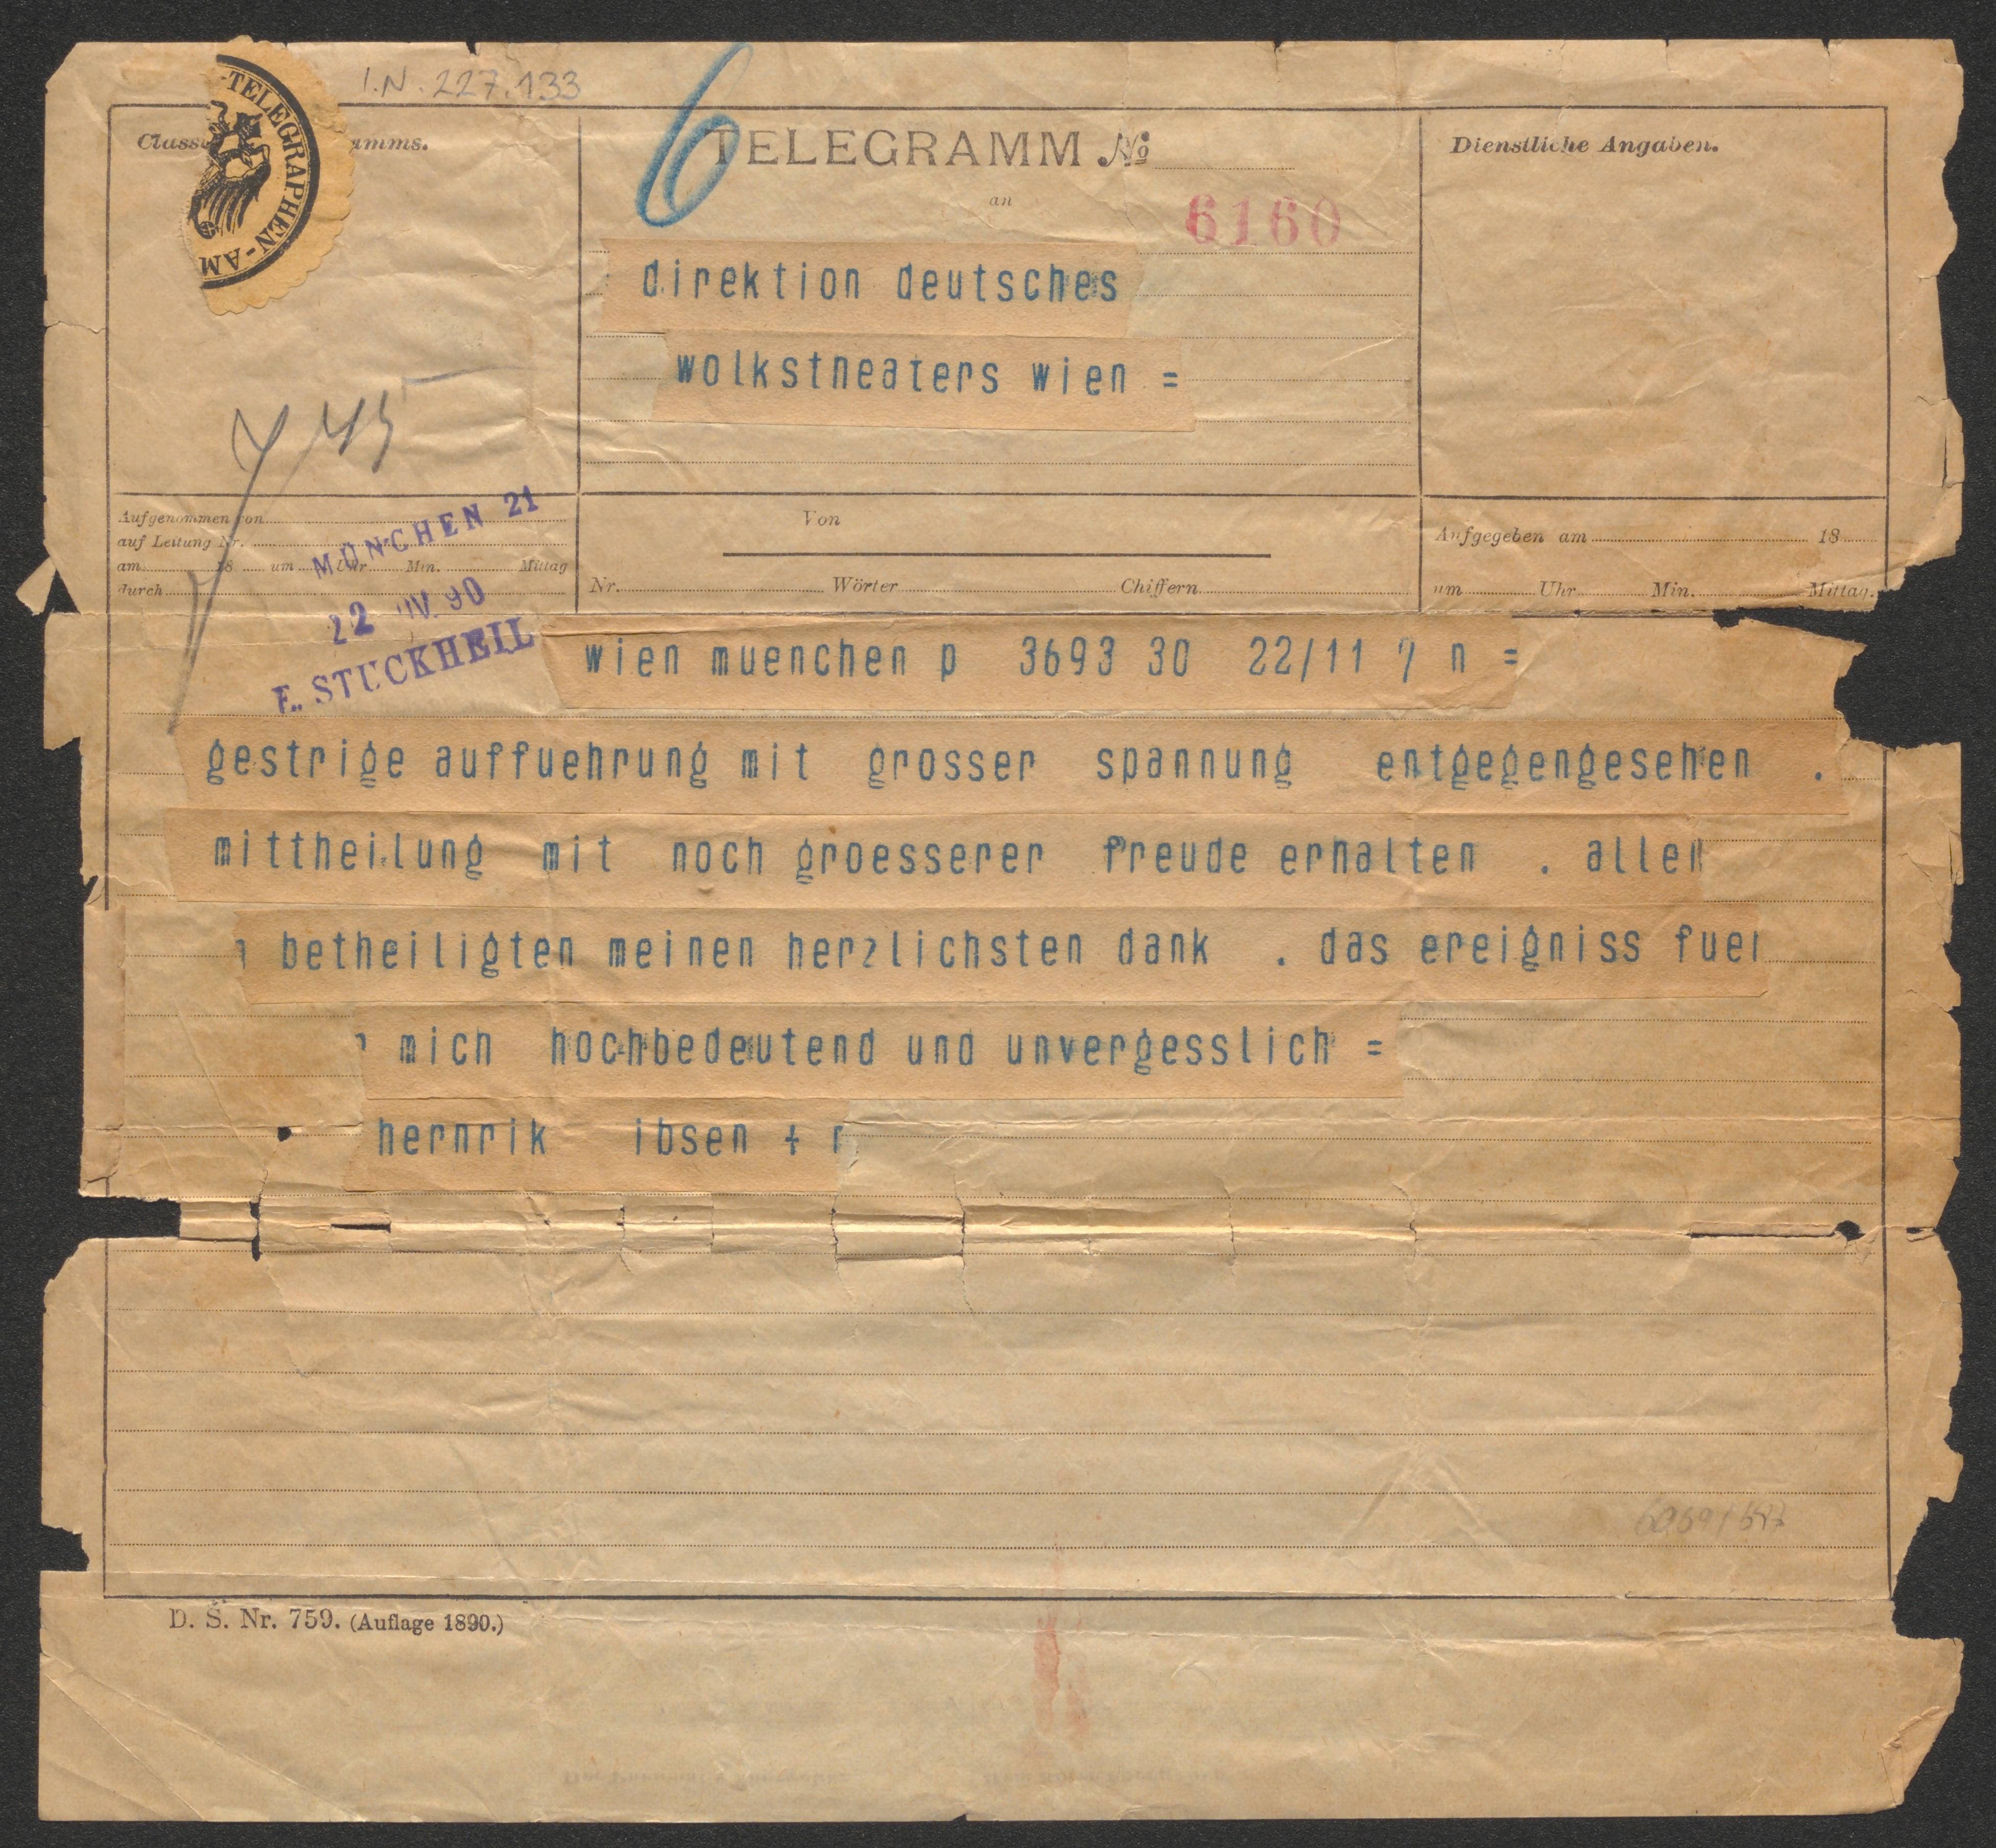 I.N. 227.133
-TELEGRAPHEN-AM
6
TELEGRAMM No
an
6160
Dienstliche Angaben.
direktion deutsches
wolkstheaters wien =
7 45
Aufgenommen von
auf Leitung Nr.
am 18 um Uhr Min. Mittag
durch
MÜNCHEN 21
22 90
E. STUCKHEIL
Von
Nr. Wörter Chiffern
Aufgegeben am 18
um Uhr Min. Mittag.
wien muenchen p 3693 30 22/11 7 n =
gestrige auffuehrung mit grosser spannung entgegengesehen .
mittheilung mit noch groesserer freude erhalten . allen
betheiligten meinen herzlichsten dank . das ereigniss fuer
mich hochbedeutend und unvergesslich =
hernrik ibsen +
D. S. Nr. 759. (Auflage 1890.)